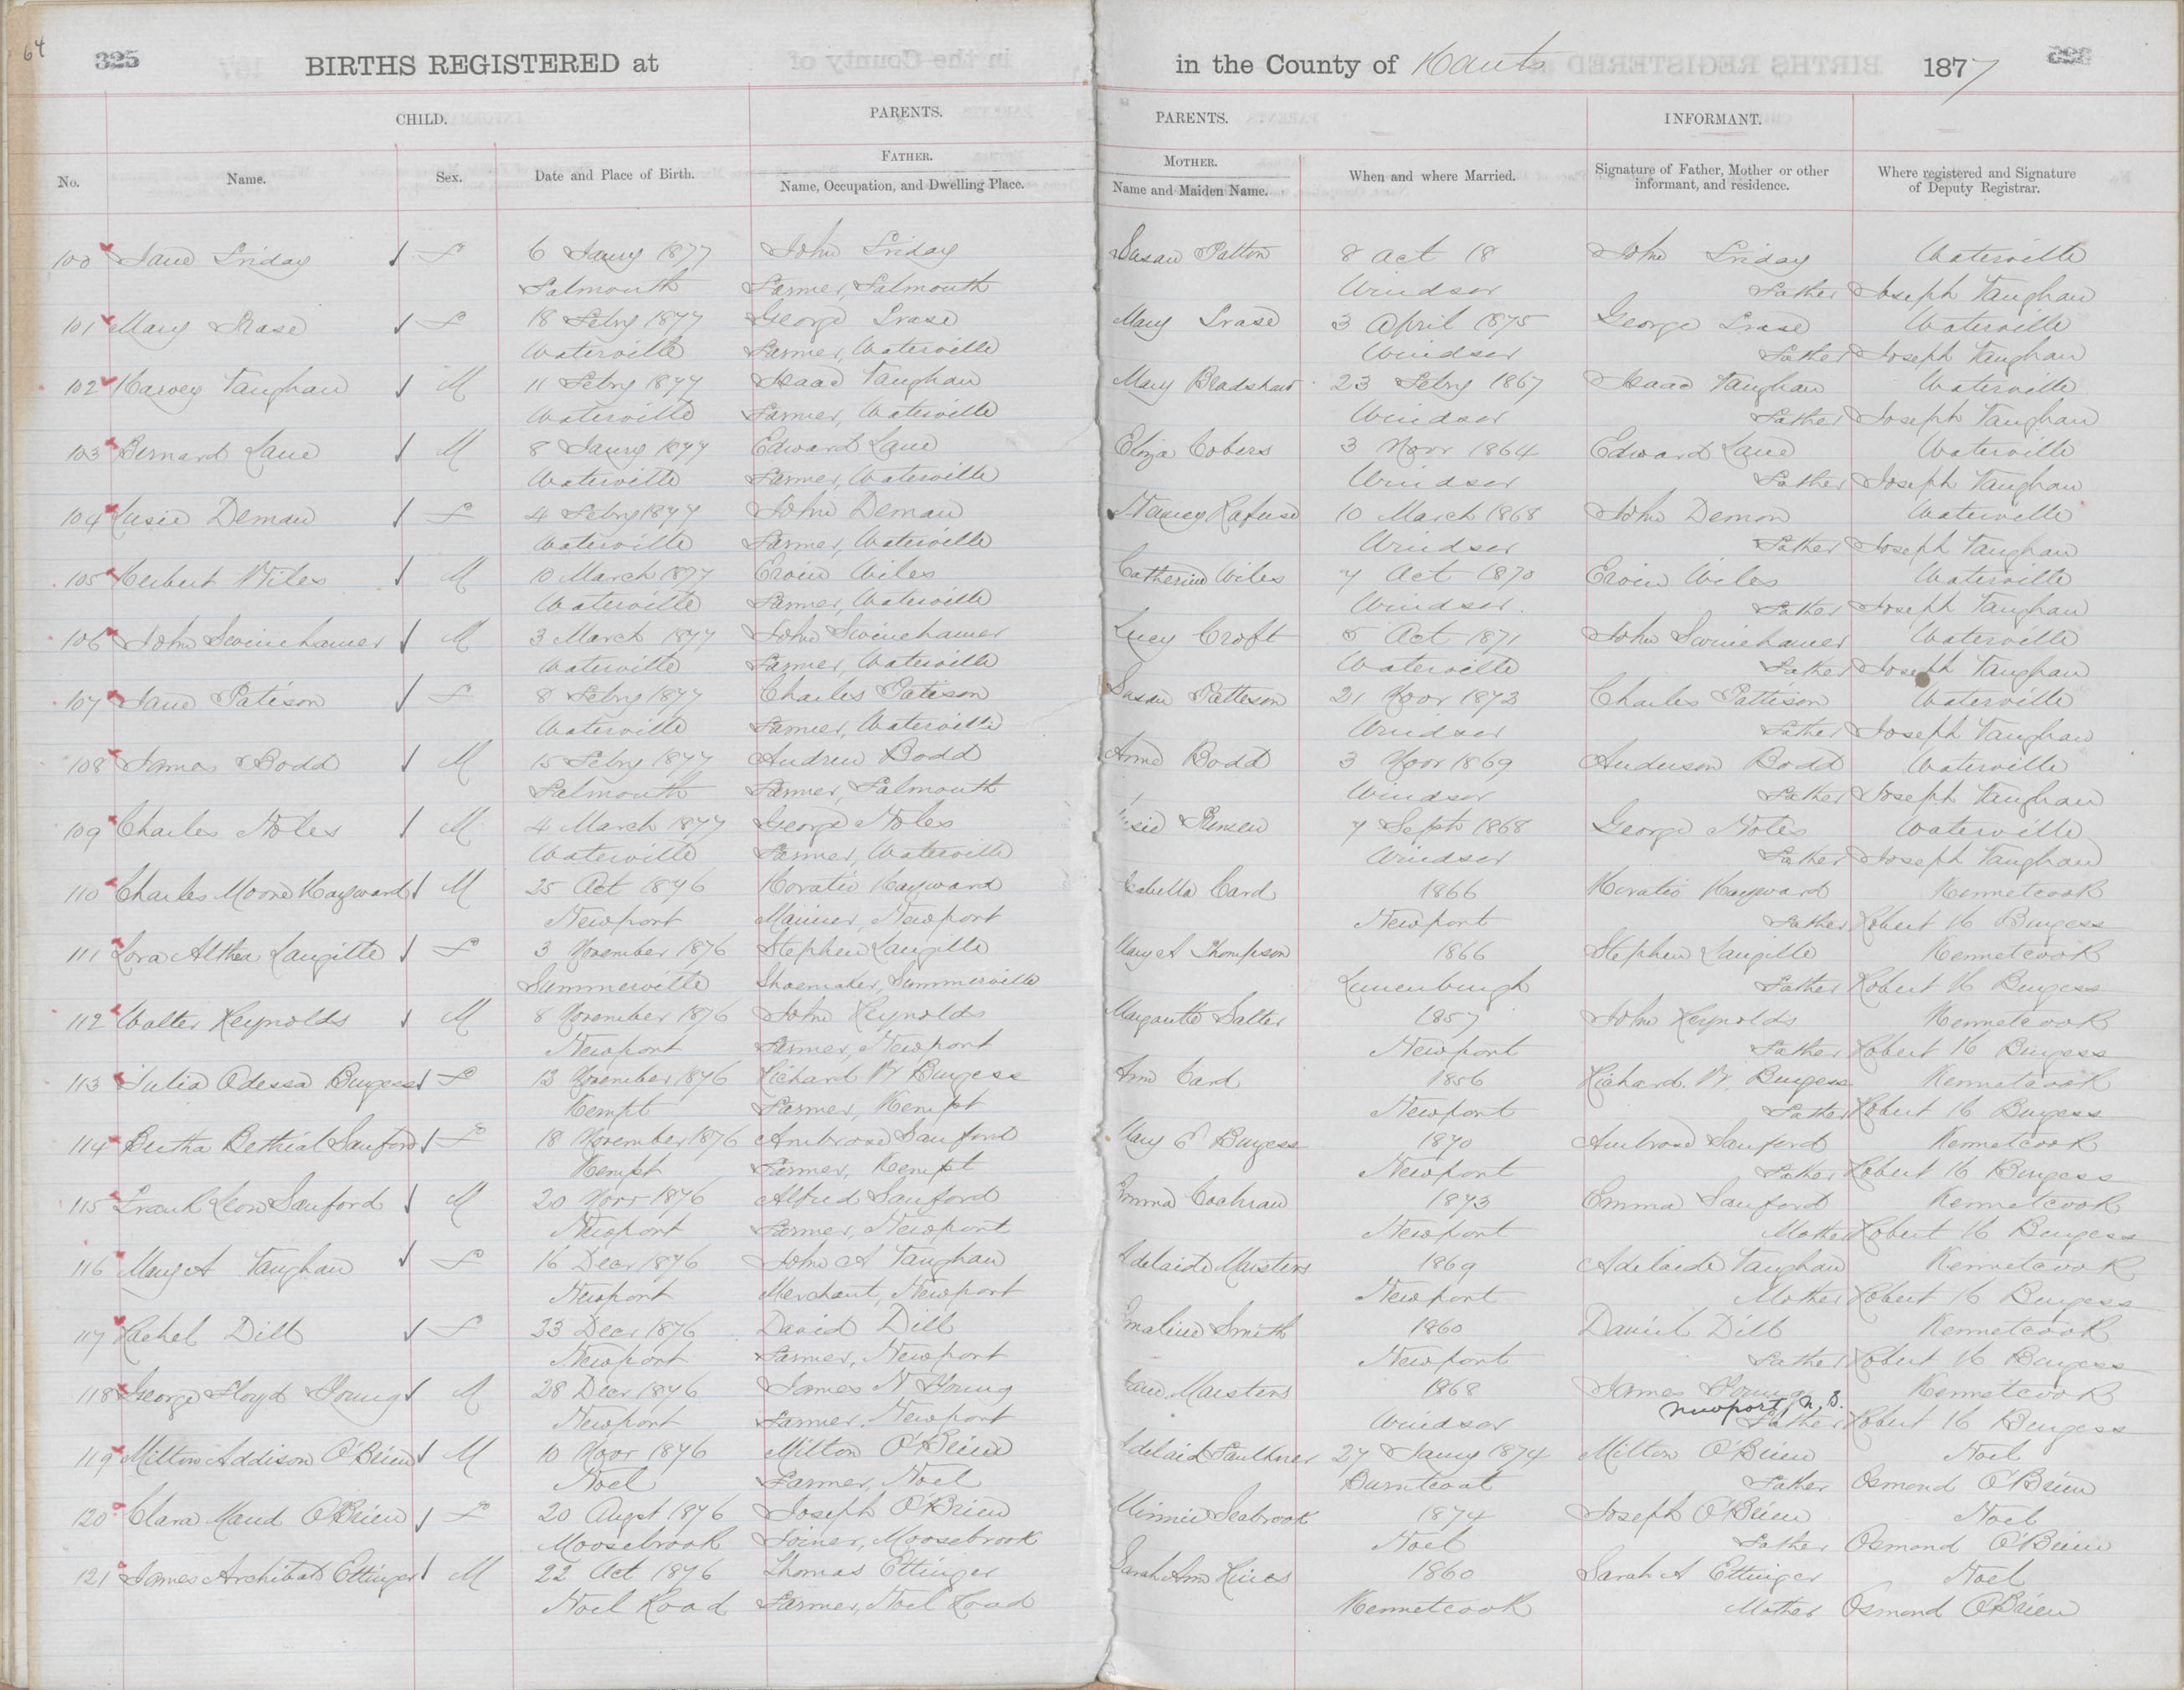 64
325 BIRTHS REGISTERED at in the County of Hants 1877
CHILD. PARENTS. PARENTS. INFORMANT.
No. Name. Sex. Date and Place of Birth. FATHER. Name, Occupation, and Dwelling Place. MOTHER. Name and Maiden Name. When and where Married. Signature of Father, Mother or other informant, and residence. Where registered and Signature of Deputy Registrar.
100 Jane Friday F 6 Jany 1877 John Friday Susan Patton 8 Oct 18 John Friday Waterville
Falmouth Farmer, Falmouth Windsor Father Joseph Vaughan
101 Mary F 18 Febry 1877 George Mary 3 April 1875 George Waterville
Waterville Farmer, Waterville Windsor Father Joseph Vaughan
102 Harvey Vaughan M 11 Febry 1877 Isaac Vaughan Mary Bradshaw 23 Febry 1867 Isaac Vaughan Waterville
Waterville Farmer, Waterville Windsor Father Joseph Vaughan
103 Bernard Lane M 8 Jany 1877 Edward Lane Eliza 3 Novr 1864 Edward Lane Waterville
Waterville Farmer, Waterville Windsor Father Joseph Vaughan
104 Susie Deman F 4 Febry 1877 John Deman Nancy Rafuse 10 March 1868 John Demon Waterville
Waterville Farmer, Waterville Windsor Father Joseph Vaughan
105 Herbert Wiles M 10 March 1877 Ervin Wiles Catherine Wiles 7 Oct 1870 Ervin Wiles Waterville
Waterville Farmer, Waterville Windsor. Father Joseph Vaughan
106 John Swinehamer M 3 March 1877 John Swinehamer Lucy Croft 5 Oct 1871 John Swinehamer Waterville
Waterville Farmer, Waterville Waterville Father Joseph Vaughan
107 Jane Patison F 8 Febry 1877 Charles Patison Susan Patteson 21 Novr 1873 Charles Pattison Waterville
Waterville Farmer, Waterville Windsor Father Joseph Vaughan
108 James Dodd M 15 Febry 1877 Andrew Dodd Dodd 3 Novr 1869 Anderson Dodd Waterville
Falmouth Farmer, Falmouth Windsor Father Joseph Vaughan
109 Charles Noles M 4 March 1877 George Noles 7 Sept 1868 George Noles Waterville
Waterville Farmer, Waterville Windsor Father Joseph Vaughan
110 Charles Moore Hayward M 25 Oct 1876 Horatio Hayward Isabella Card 1866 Horatio Hayward Kennetcook
Newport Newport Newport Father Robert H Burgess
111 Lora Althea Langille F 3 November 1876 Stephen Langille Mary A Thompson 1866 Stephen Langille Kennetcook
Summerville Shoemaker, Summerville Lunenburgh Father Robert H Burgess
112 Walter Reynolds M 8 November 1876 John Reynolds Margarette Salter 1857 John Reynolds Kennetcook
Newport Farmer, Newport Newport Father Robert H Burgess
113 Julia Odessa Burgess F 13 November 1876 Richard W Burgess Ann Card 1856 Richard. W. Burgess Kennetcook
Kempt Farmer, Kempt Newport Father Robert H Burgess
114 Bertha Bethial Sanford F 18 November 1876 Ambrose Sanford Mary E Burgess 1870 Ambrose Sanford Kennetcook
Kempt Farmer, Kempt Newport Father Robert H Burgess
115 Frank Leon Sanford M 20 Novr 1876 Alfred Sanford Emma Cochran 1873 Emma Sanford Kennetcook
Newport Farmer, Newport Newport Mother Robert H Burgess
116 Mary A Vaughan F 16 Decr 1876 John A Vaughan Adelaide Marsters 1869 Adelaide Vaughan Kennetcook
Newport Merchant, Newport Newport Mother Robert H Burgess
117 Rachel Dill F 23 Decr 1876 David Dill Emaline Smith 1860 Daniel Dill Kennetcook
Newport Farmer, Newport Newport Father Robert H Burgess
118 George Floyd Young M 28 Decr 1876 James N Young Jane Marsters 1868 James Young Kennetcook
Newport Farmer, Newport Windsor Newport, N.S. Father Robert H Burgess
119 Milton Addison O'Brien M 10 Novr 1876 Milton O'Brien Adelaid Faulkner 27 Jany 1874 Milton O'Brien Noel
Noel Farmer, Noel Burntcoat Father Osmond O'Brien
120 Clara Maud O'Brien F 20 Augst 1876 Joseph O'Brien Minnie Seabrook 1874 Joseph O'Brien Noel
Moosebrook Joiner, Moosebrook Noel Father Osmond O'Brien
121 James Archibald Ettinger M 22 Oct 1876 Thomas Ettinger Sarah Ann Hines 1860 Sarah A Ettinger Noel
Noel Road Farmer, Noel Road Kennetcook Mother Osmond O'Brien